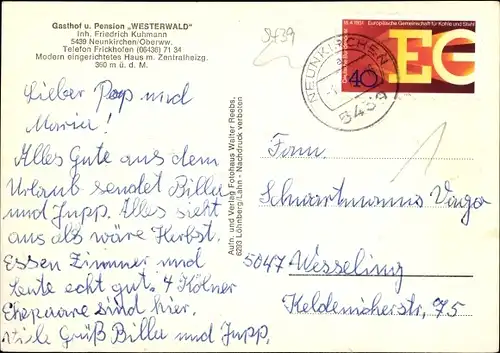 Gasthof u. Pension „WESTERWALD"
Inh. Friedrich Kuhmann
5439 Neunkirchen/Oberww.
Telefon Frickhofen (06436) 71 34
Modern eingerichtetes Haus m. Zentralheizg.
360 m ü. d. M.
5439
Lieber Pepp und
Maria!
Alles Gute aus dem
Urlaub sendet Billa
und Jupp. Alles sieht
aus als wäre Herbst.
Essen Zimmer und
Leute echt gut. 4 Kölner
Ehepaare sind hier.
Viele Grüß Billa und Jupp.
Aufn. und Verlag Fotohaus Walter Reebs,
6293 Löhnberg/Lahn - Nachdruck verboten
18.4.1951 Europäische Gemeinschaft für Kohle und Stahl
EG
40
NEUNKIRCHEN
5439
Fam.
Schwartmanns
5047 Wesseling
Keldenicherstr. 75